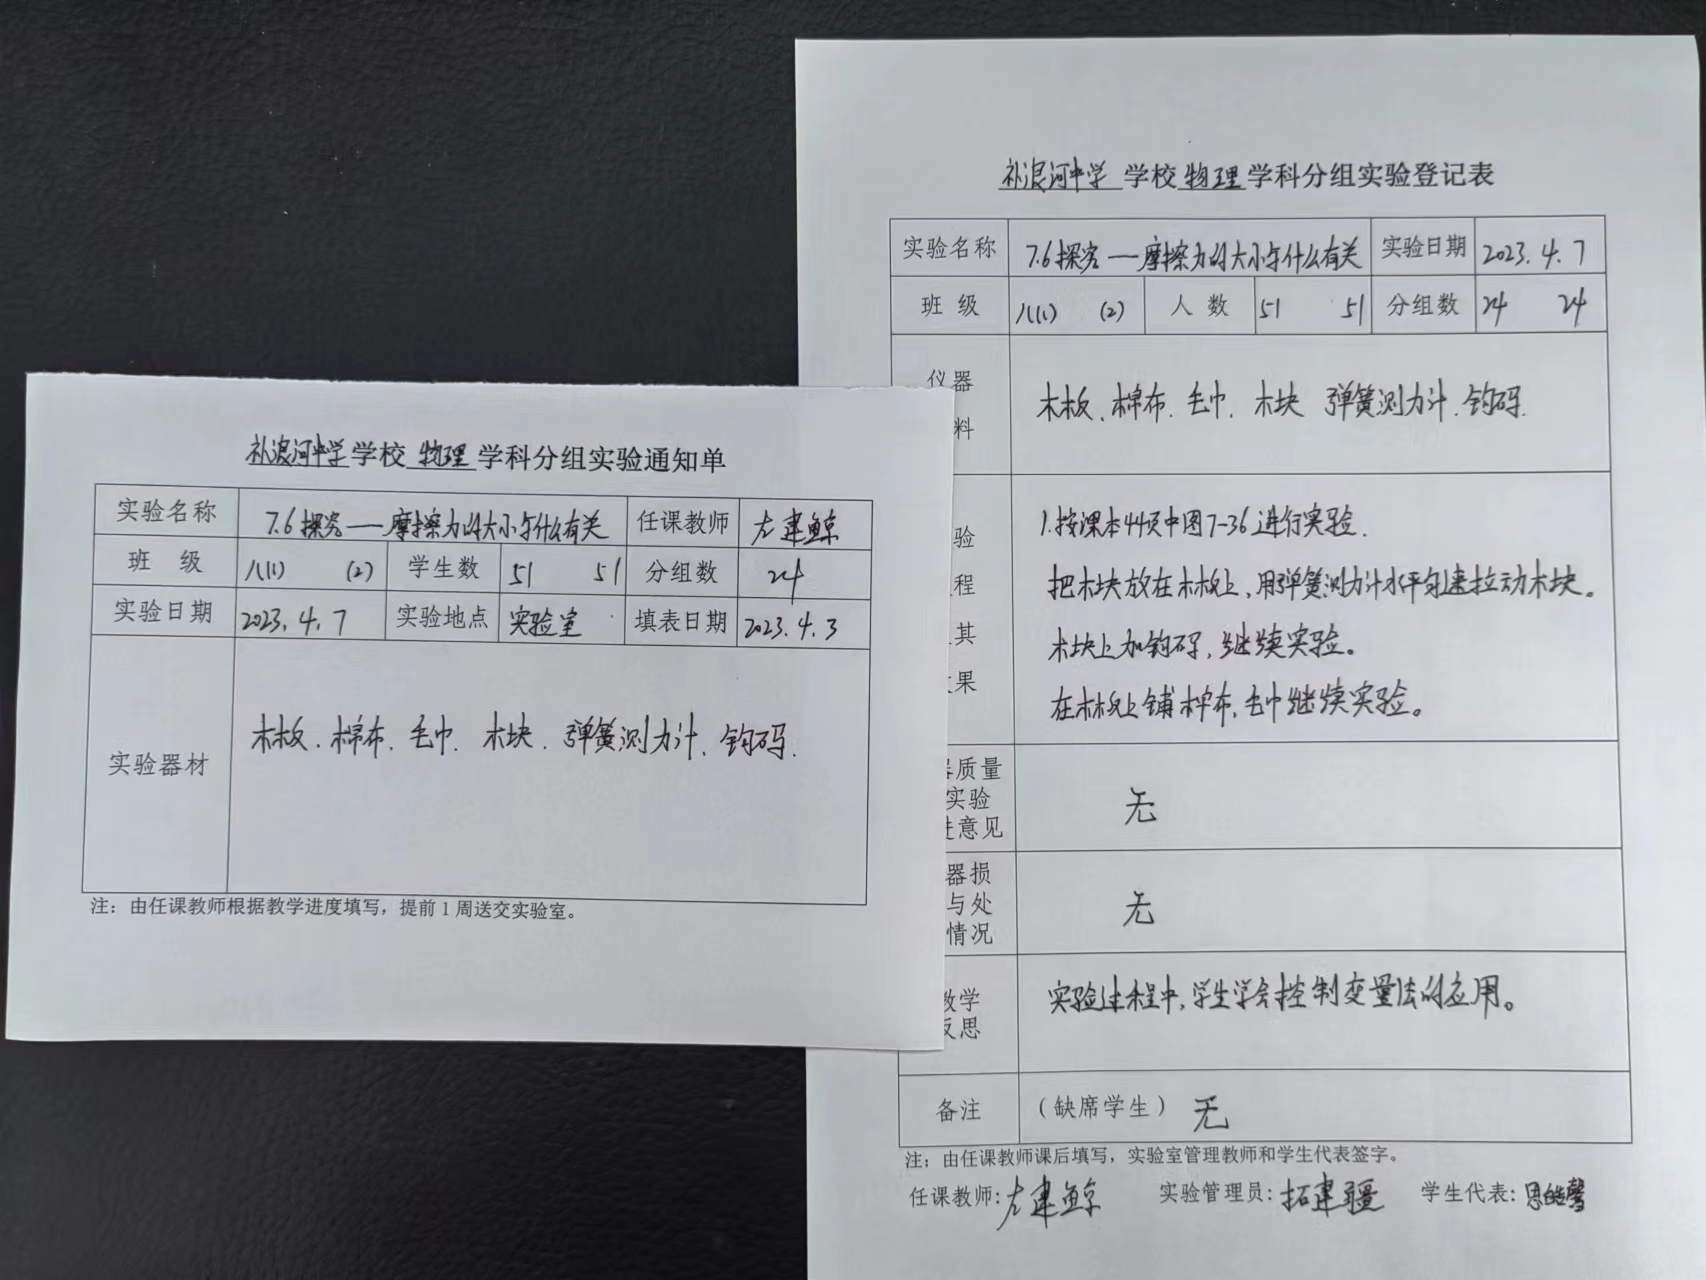 补浪河中学学校物理学科分组实验通知单
实验名称 7.6探究——摩擦力的大小与什么有关 任课教师 左建鲸
班 级 八(1) (2) 学生数 51 51 分组数 24
实验日期 2023.4.7 实验地点 实验室 填表日期 2023.4.3
实验器材 木板、棉布、毛巾、木块、弹簧测力计、钩码.
注：由任课教师根据教学进度填写，提前1周送交实验室。
补浪河中学学校物理学科分组实验登记表
实验名称 7.6探究——摩擦力的大小与什么有关 实验日期 2023.4.7
班 级 八(1) (2) 人 数 51 51 分组数 24 24
仪器
料
木板、棉布、毛巾、木块 弹簧测力计、钩码.
验
程
其
果
1.按课本44页中图7-36进行实验.
把木块放在木板上，用弹簧测力计水平匀速拉动木块。
木块上加钩码，继续实验。
在木板上铺棉布，毛巾继续实验。
质量
实验
意见
无
器损
与处
情况
无
教学
反思
实验过程中，学生学会控制变量法的应用。
备注 （缺席学生） 无
注：由任课教师课后填写，实验室管理教师和学生代表签字。
任课教师：左建鲸 实验管理员：拓建疆 学生代表：